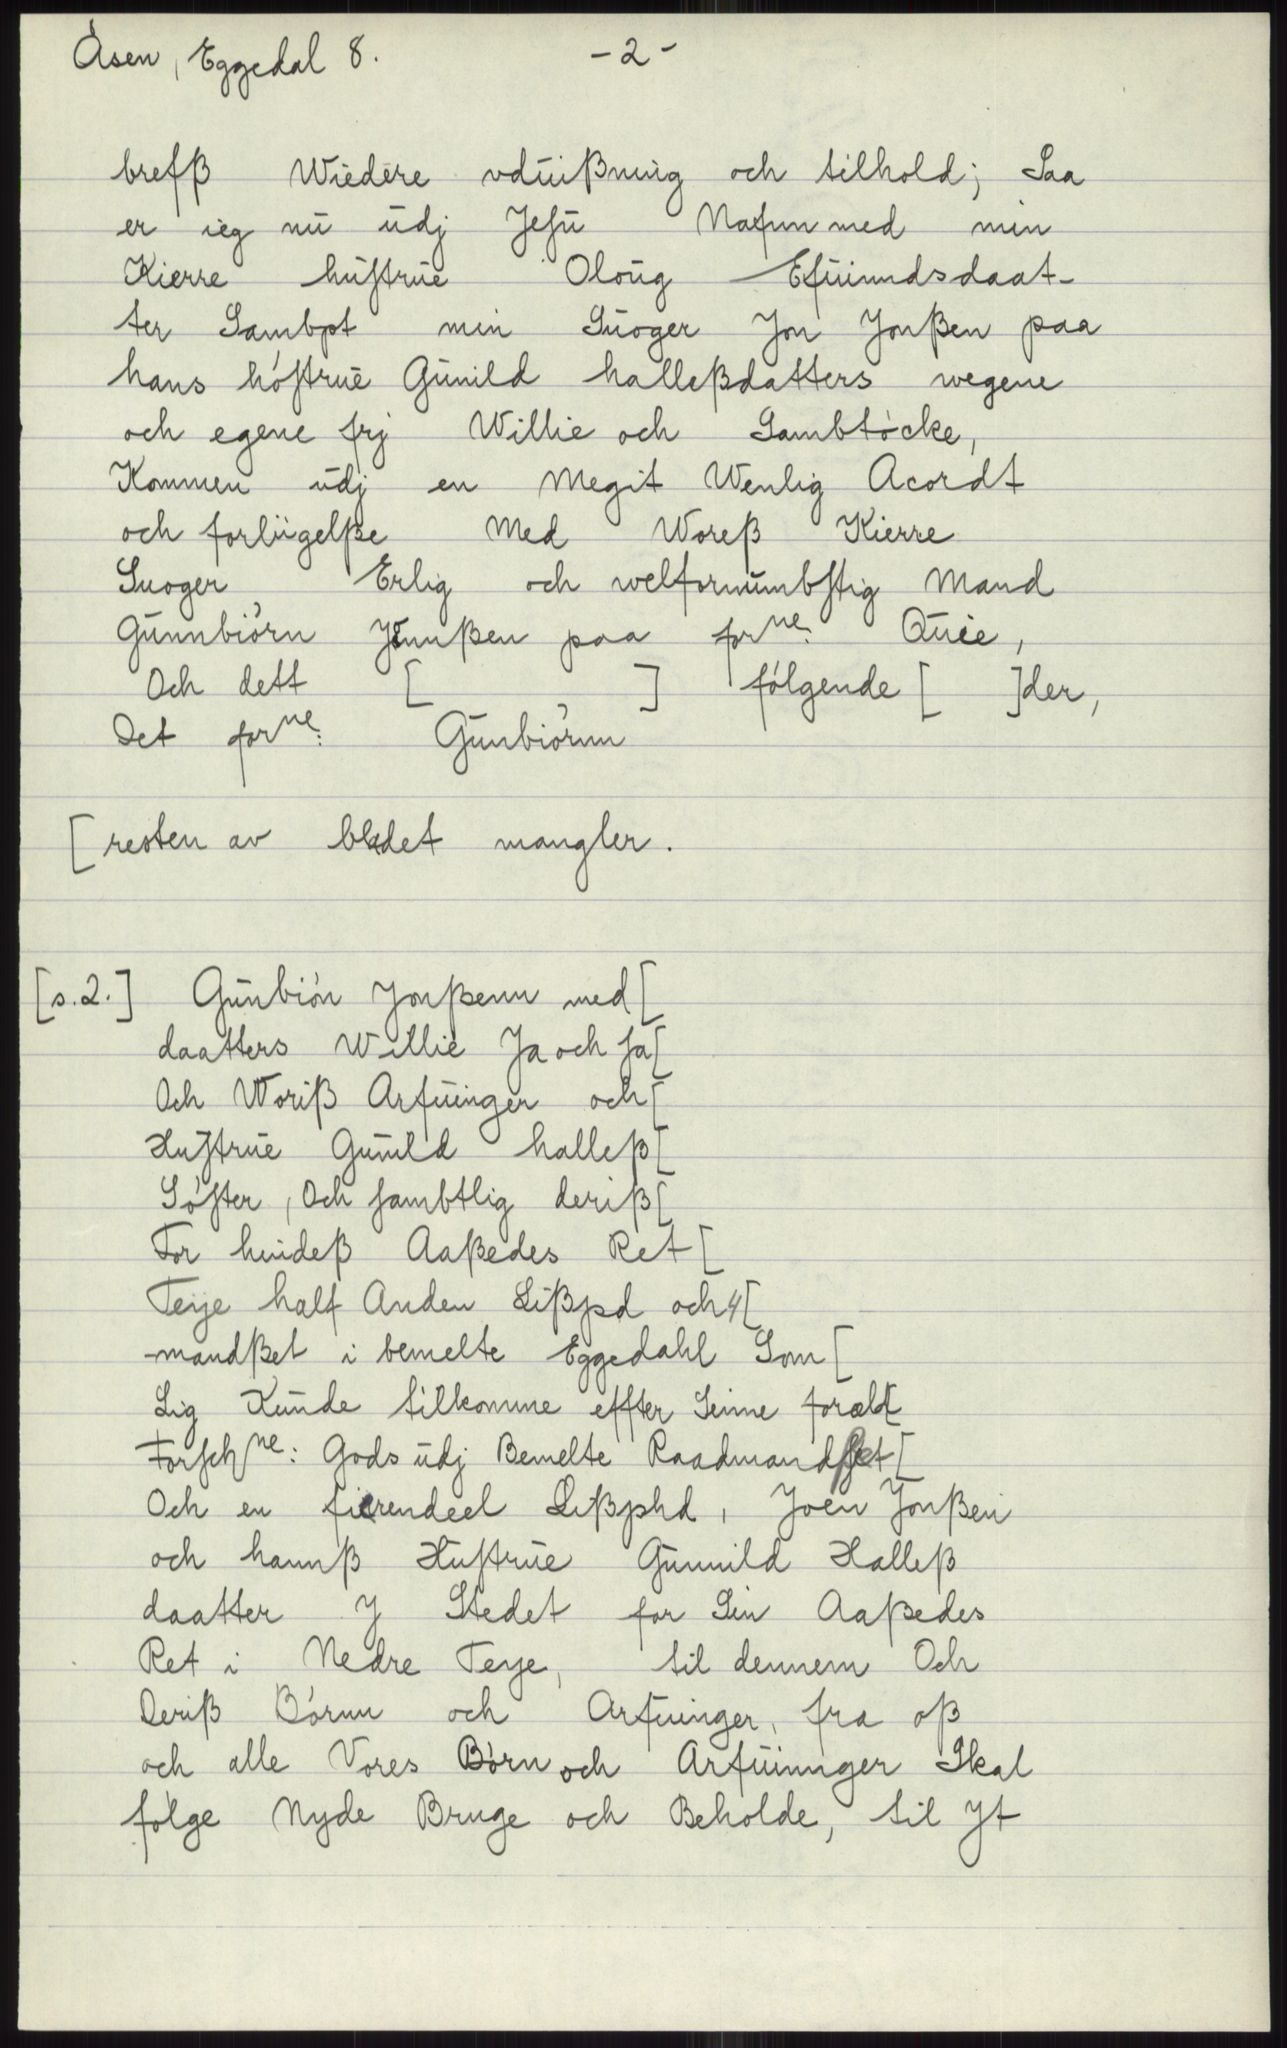 Åsen, Eggedal 8. - 2 -
brefß Wiedere vdüißning och tilhold; Saa
er ieg nü üdj Jesu Nafnn med min
Kierre hüstrüe Oloüg Efüindsdaat-
ter Sambpt min Süoger Jon Jonßen paa
hans höstrüe Günild halleßdatters wegene
och egene frj Willie och Sambtöcke,
Kommen üdj en Megit Wenlig Acordt
och forliigelße Med Woreß Kierre
Suoger Erlig och welfornümbstig Mand
Günnbiörn Jonnßen paa forne: Qüie,
Och dett [ ] fölgende [ ]der,
Det forne: Günbiörnn
[resten av bladet mangler.
[s.2.] Günbiön Jonßenn med [
daatters Willie Ja och Ja[
Och Woriß Arfüinger och [
Hustrüe Günild halleß[
Söster, Och sambtlig deriß[
For hindeß Aaßedes Ret [
Teye half Anden Lißpd och 4[
-mandßet i bemelte Eggedahl Som [
Sig Künde tilkomme effter Sinne foræld[
Forschne: Gods üdj Bemelte Raadmandset [
Och en fierendeel Lißphd, Joen Jonßen
och hannß Hustrüe Günnild Halleß
daatter J Stedet for Sin Aaßedes
Ret i Nedre Teye, til dennem Och
Deriß Börnn och Arfüinger, fra oß
och alle Vores Börn och Arfüinnger Skal
fölge Nyde Bruge och Beholde, til Jt